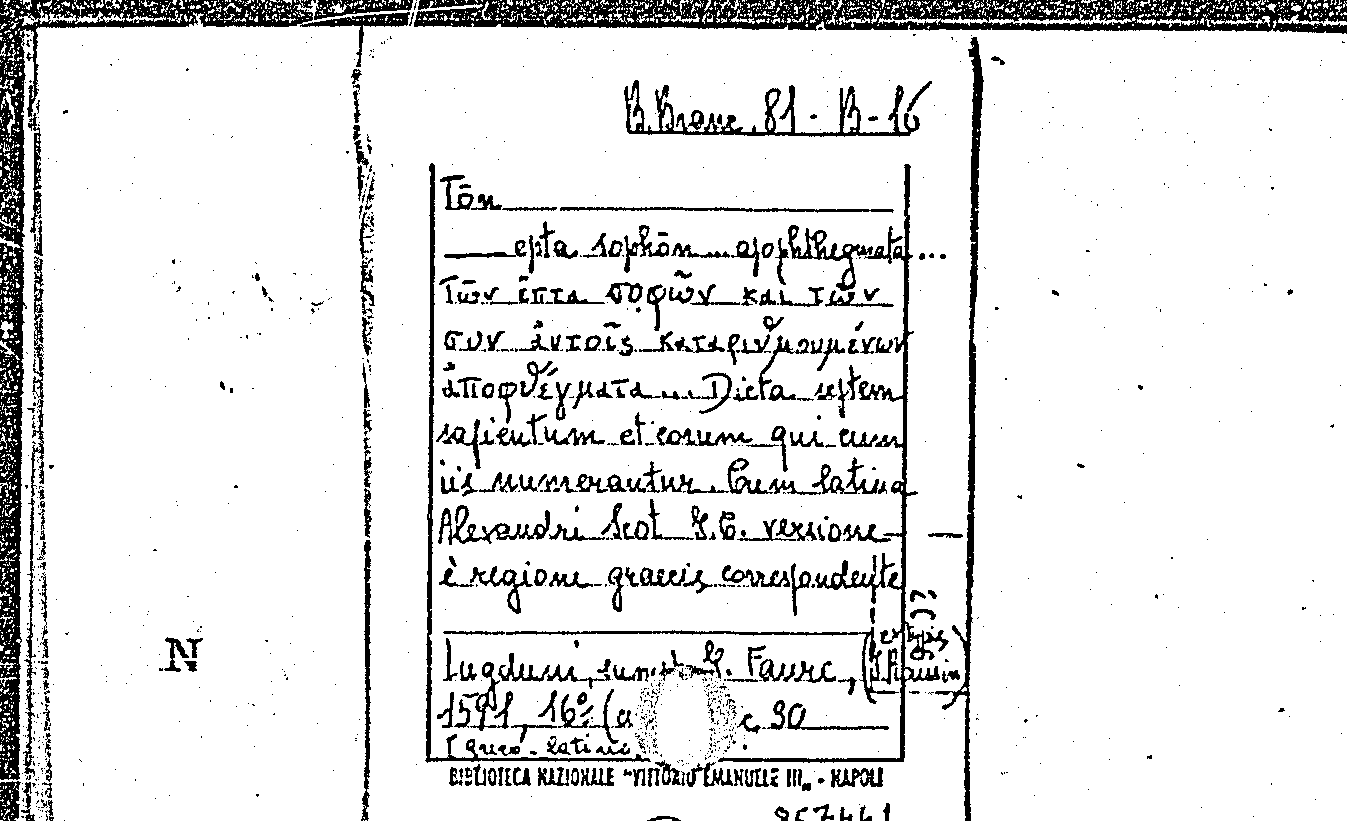 B. Branc. 81 - B - 16
Tōn
epta sophōn ... apophthegmata ...
Τῶν ἑπτα σοφῶν και τῶν
συν ἀυτοῖς καταριϑμουμένων
ἀποφϑέγματα ... Dicta septem
sapientum et eorum qui cum
iis numerantur. Cum latina
Alexandri Scot J.C. versione
è regione graecis correspondente
)?
Lugduni, sumpt. G. Faure, (ex typis
J. Roussin)
1591, 16º (a c. 90
[greco-latino
BIBLIOTECA NAZIONALE "VITTORIO EMANUELE III" - NAPOLI
N